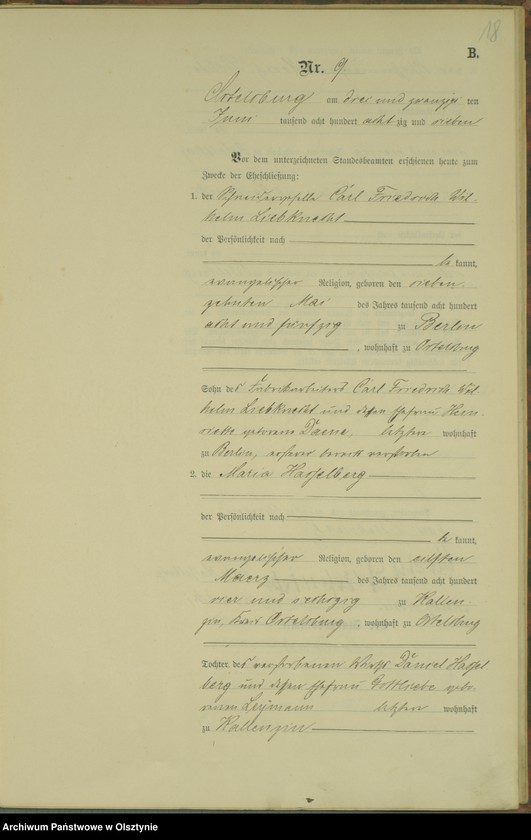 18
B.
Nr. 9.
Ortelsburg am drei und zwanzig ten
Juni tausend acht hundert acht zig und sieben
Vor dem unterzeichneten Standesbeamten erschienen heute zum
Zwecke der Eheschließung:
1. der Schneidergeselle Carl Friedrich Wil-
helm Liebknecht
der Persönlichkeit nach
be kannt,
evangelischer Religion, geboren den sieben-
zehnten Mai des Jahres tausend acht hundert
acht und fünfzig zu Berlin
, wohnhaft zu Ortelsburg
Sohn des Fabrikarbeiters Carl Friedrich Wil-
helm Liebknecht und dessen Ehefrau Hen-
riette geborene letztere wohnhaft
zu Berlin, ersterer bereits verstorben
2. die Maria Hasselberg
der Persönlichkeit nach
be kannt,
evangelischer Religion, geboren den
Maerz des Jahres tausend acht hundert
vier und sechszig zu Kallen-
zin, Kreis Ortelsburg, wohnhaft zu Ortelsburg
Tochter des verstorbenen Wirths Daniel Hassel
berg und dessen Ehefrau Gottliebe gebo-
renen letztere wohnhaft
zu Kallenzin
Archiwum Państwowe w Olsztynie